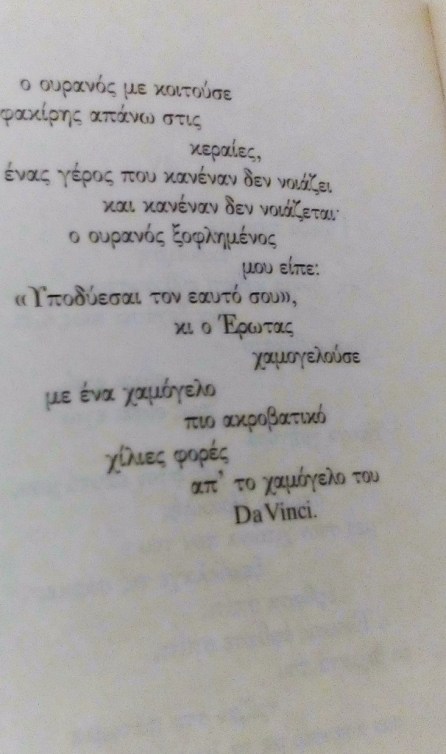 ο ουρανός με κοιτούσε
φακίρης απάνω στις
κεραίες,
ένας γέρος που κανέναν δεν νοιάζει
και κανέναν δεν νοιάζεται·
ο ουρανός ξοφλημένος
μου είπε:
«Υποδύεσαι τον εαυτό σου»,
κι ο Έρωτας
χαμογελούσε
με ένα χαμόγελο
πιο ακροβατικό
χίλιες φορές
απ’ το χαμόγελο του
Da Vinci.